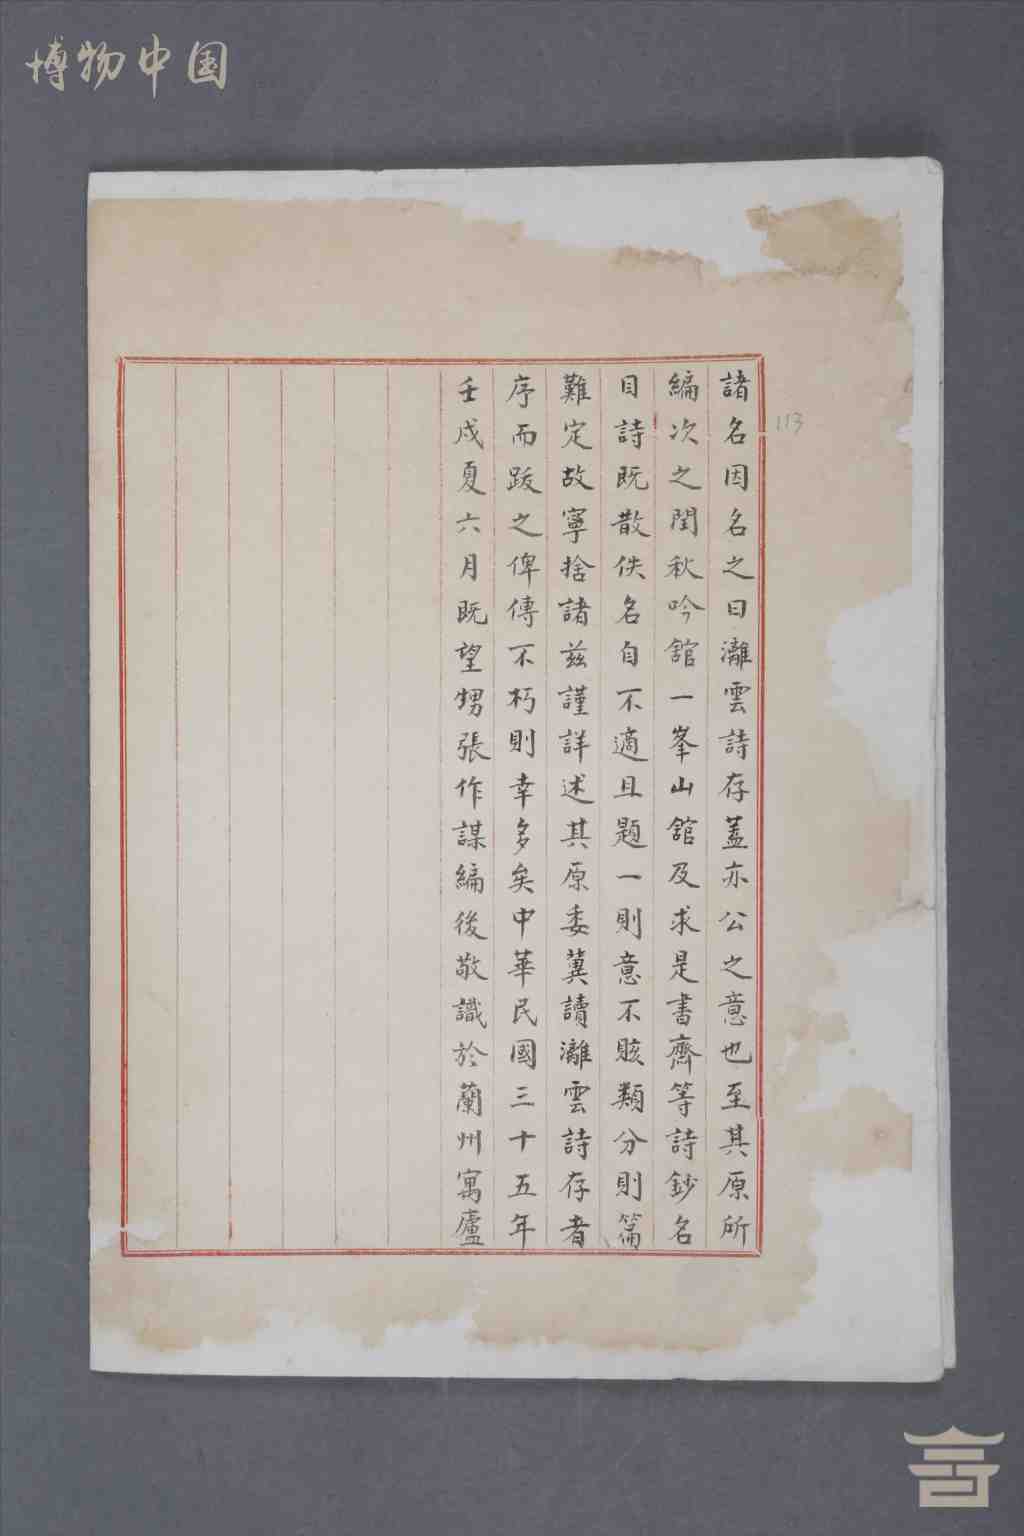 博物中国
諸名因名之曰灕雲詩存蓋亦公之意也至其原所
編次之閏秋吟舘一峯山舘及求是書齋等詩鈔名
目詩既散佚名自不適且題一則意不賅類分則篇
難定故寧捨諸兹謹詳述其原委冀讀灕雲詩存者
序而跋之俾傳不朽則幸多矣中華民國三十五年
壬戌夏六月既望甥張作謀編後敬識於蘭州寓廬
113